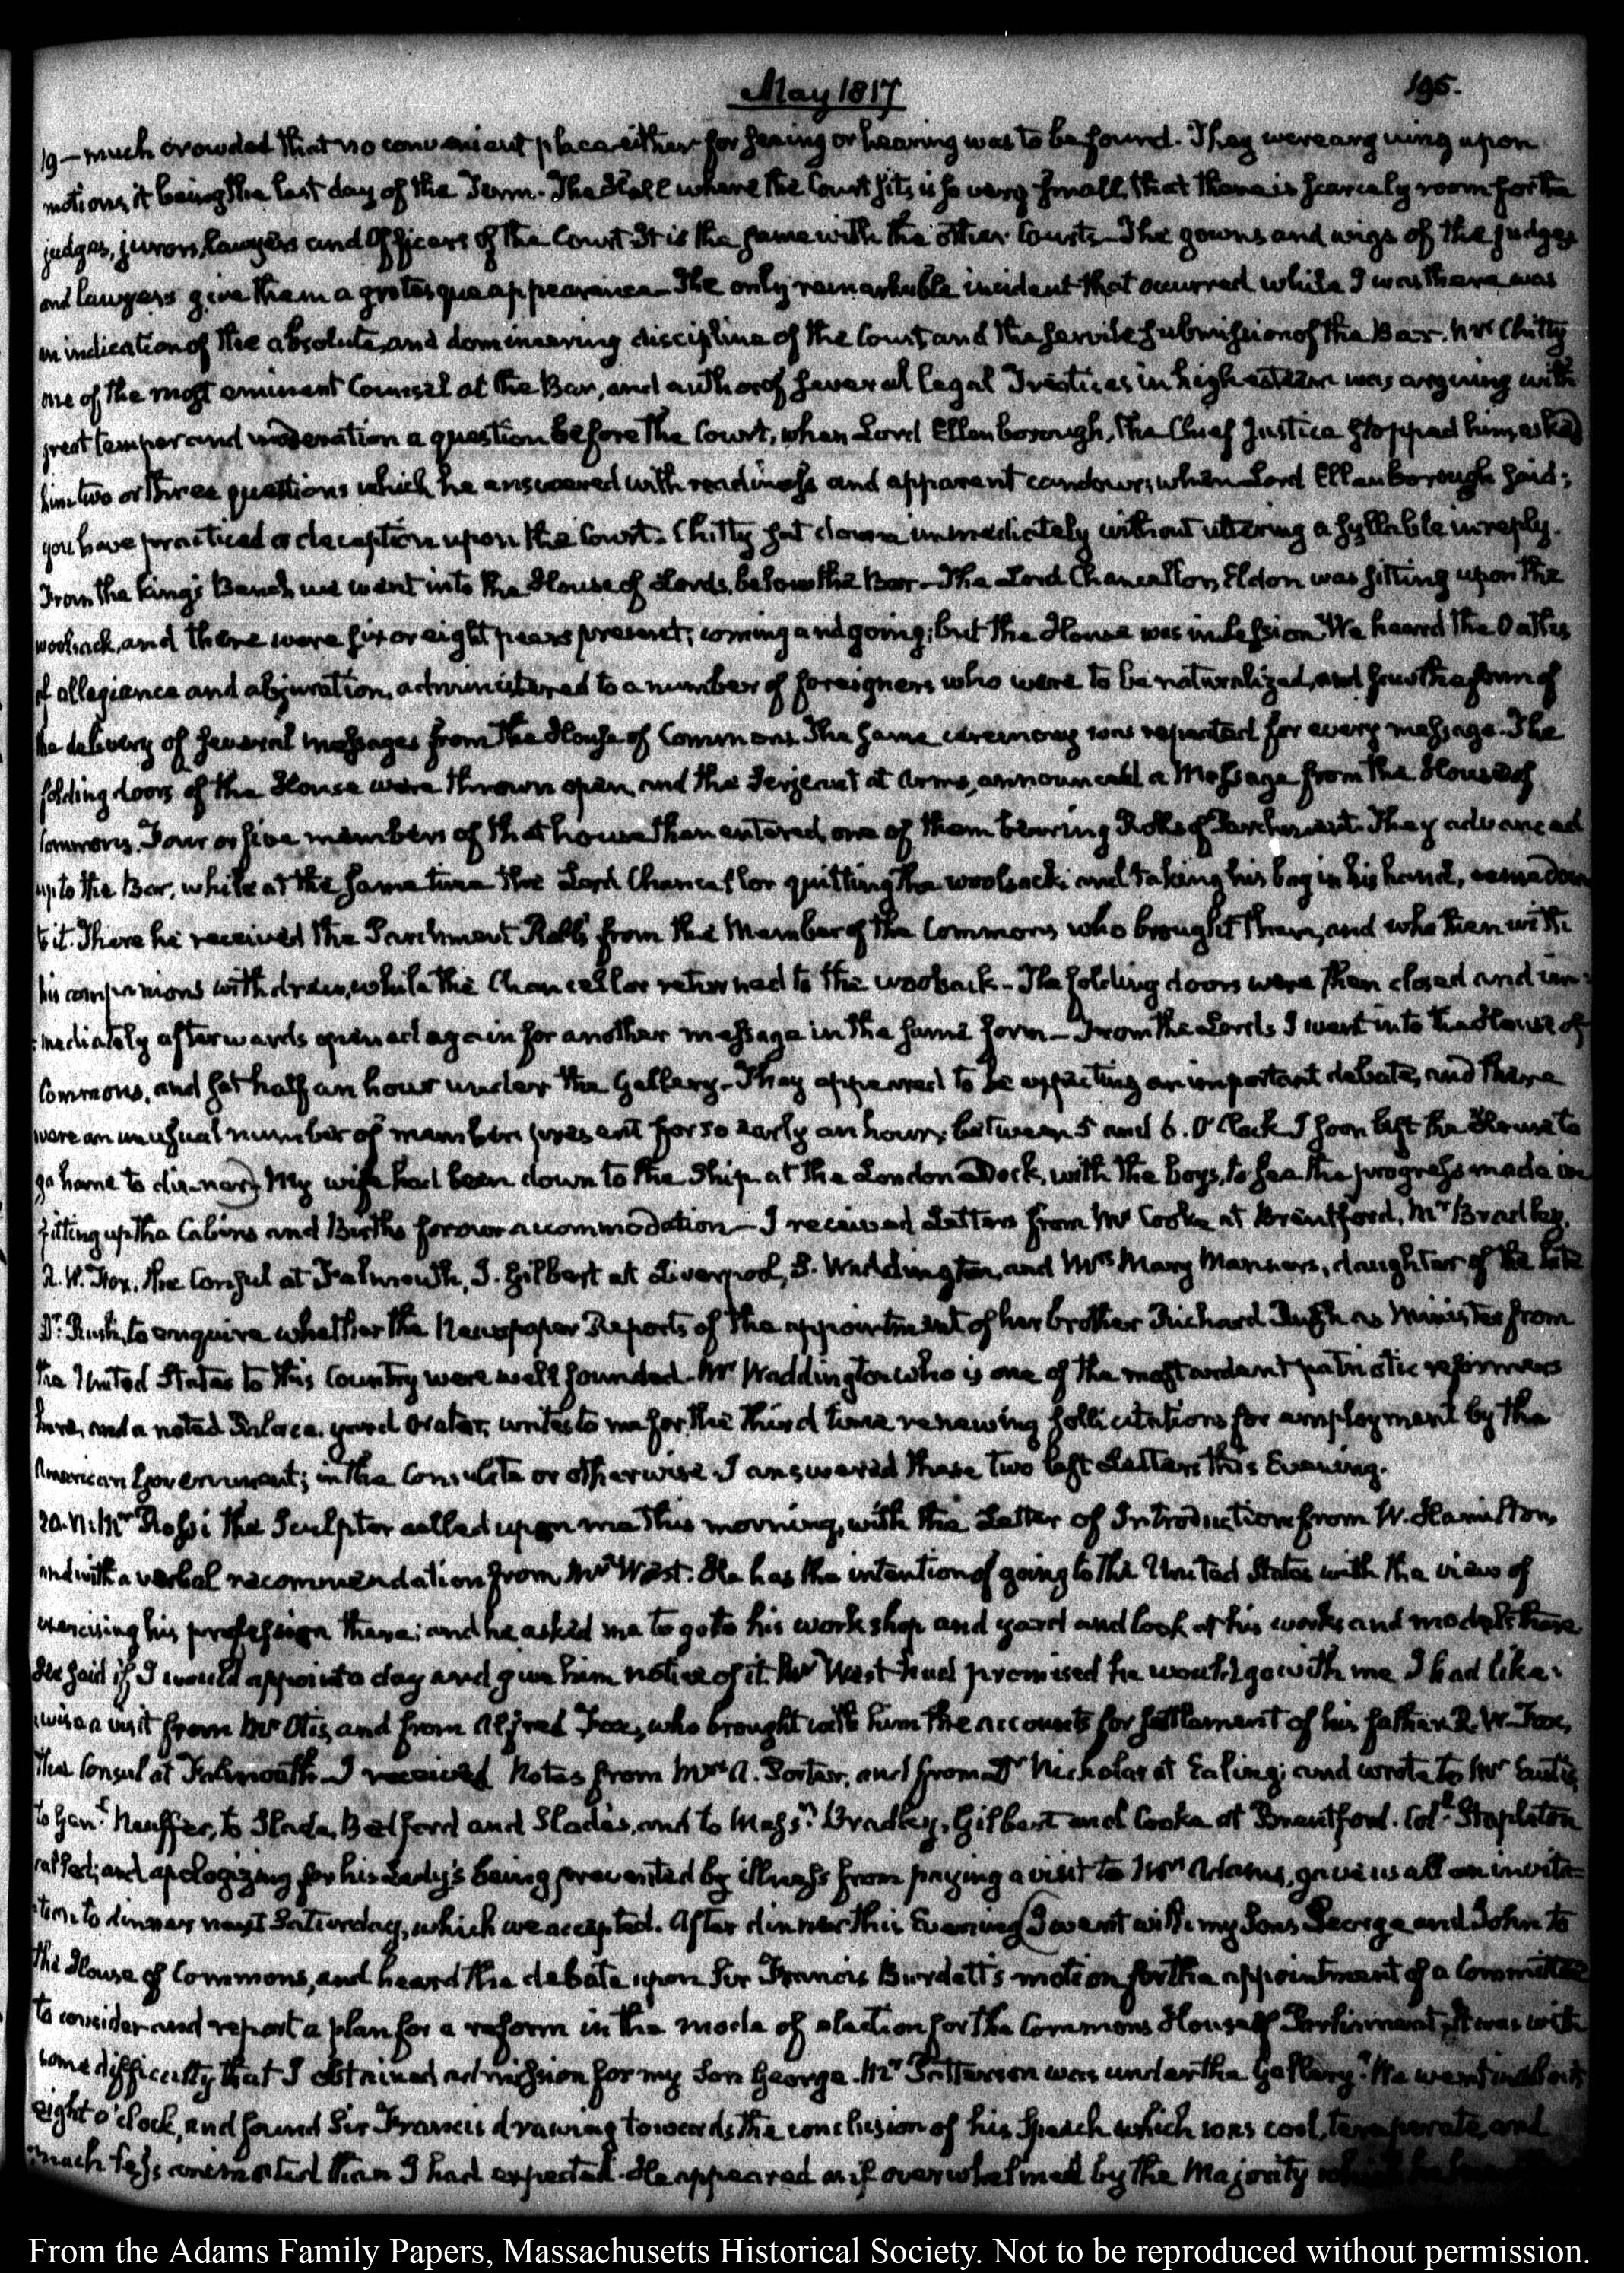 May 1817
195.
19 — much crowded that no convenient place either for seeing or hearing was to be found. They were arguing upon
motions, it being the last day of the Term. The Hall where the Court sits, is so very small, that there is scarcely room for the
judges, jurors, lawyers and Officers of the Court. It is the same with the other Courts — The gowns and wigs of the judges
and lawyers give them a grotesque appearance — The only remarkable incident that occurred while I was there was
an indication of the absolute, and domineering discipline of the Court and the servile submission of the Bar. Mr Chitty
one of the most eminent Counsel at the Bar, and author of several legal Treatises in high esteem was arguing with
great temper and moderation a question before the Court, when Lord Ellenborough, the Chief Justice stopped him, asked
him two or three questions which he answered with readiness and apparent candour; when Lord Ellenborough said;
you have practiced a deception upon the Court. Chitty sat down immediately without uttering a syllable in reply.
From the King's Bench we went into the House of Lords, below the Bar — The Lord Chancellor, Eldon was sitting upon the
woolsack, and there were six or eight peers present; coming and going; but the House was in Session. We heard the Oaths
of allegiance and abjuration, administered to a number of foreigners who were to be naturalized, and saw the form of
the delivery of several messages from the House of Commons. The same ceremony was repeated for every message. The
folding doors of the House were thrown open, and the Serjeant at Arms, announced a Message from the House of
Commons. Four or five members of that house then entered, one of them bearing Rolls of Parchment. They advanced
up to the Bar, while at the same time the Lord Chancellor quitting the woolsack, and taking his bag in his hand, came down
to it. There he received the Parchment Rolls from the Member of the Commons who brought them, and who then with
his companions withdrew, while the Chancellor returned to the woolsack — The folding doors were then closed and im=
=mediately afterwards opened again for another message in the same form — From the Lords I went into the House of
Commons, and sat half an hour under the Gallery — They appeared to be expecting an important debate, and there
were an unusual number of members present for so early an hour; between 5 and 6. O'Clock I soon left the House to
go home to dinner) My wife had been down to the Ship, at the London Dock, with the boys, to see the progress made in
fitting up the Cabins and Births for our accommodation — I received Letters from Mr Cooke at Brentford, Mr Bradley,
R. W. Fox, the Consul at Falmouth, J. Gilbert at Liverpool, S. Waddington, and Mrs Mary Manners, daughter of the late
Dr. Rush, to enquire whether the Newspaper Reports of the appointment of her brother Richard Rush as Minister from
the United States to this Country were well founded — Mr Waddington who is one of the most ardent patriotic reformers
here, and a noted Palace-yard Orator, writes to me for the third time renewing sollicitations for employment by the
American Government; in the Consulate or otherwise. I answered these two last Letters this Evening.
20. Mr Rossi the Sculptor called upon me this morning, with the Letter of Introduction from W. Hamilton,
and with a verbal recommendation from Mr West. He has the intention of going to the United States with the view of
exercising his profession there; and he asked me to go to his work shop and yard and look at his works and models there.
He said if I would appoint a day and give him notice of it Mr West had promised he would go with me I had like=
=wise a visit from Mr Otis, and from Alfred Fox, who brought with him the accounts for settlement of his father R. W. Fox,
the Consul at Falmouth — I received Notes from Mrs A. Porter, and from Dr Nicholas at Ealing; and wrote to Mr Eustis,
to Genl. Neuffer, to Slade, Bedford and Slades, and to Messrs. Bradley, Gilbert and Cooke at Brentford. Coll. Stapleton
called; and apologizing for his Lady's being prevented by illness from paying a visit to Mrs Adams, gave us all an invita=
=tion to dinner next Saturday, which we accepted. After dinner this Evening (I went with my Sons George and John to
the House of Commons, and heard the debate upon Sir Francis Burdett's motion for the appointment of a Committee
to consider and report a plan for a reform in the mode of election for the Commons House of Parliament. It was with
some difficulty that I obtained admission for my Son George. Mr Patterson was under the Gallery. We went in about
eight o'clock, and found Sir Francis drawing towards the conclusion of his Speech which was cool, temperate, and
much less animated than I had expected. He appeared as if overwhelmed by the Majority which
From the Adams Family Papers, Massachusetts Historical Society. Not to be reproduced without permission.